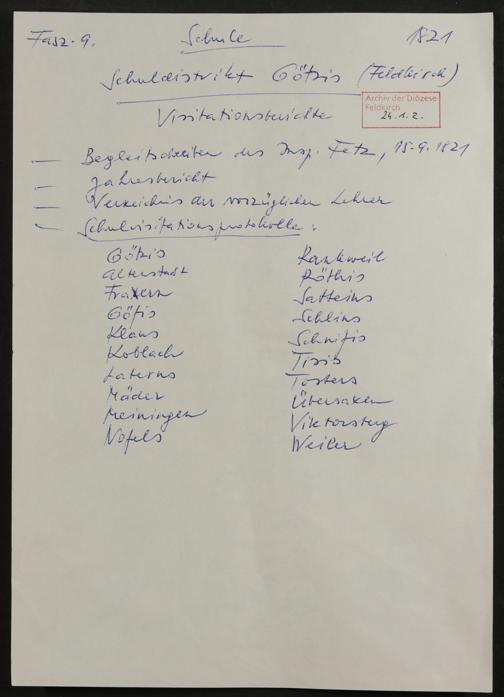 Fasz. 9. Schule 1821
Schuldistrikt Götzis (Feldkirch)
Visitationsberichte
Archiv der Diözese
Feldkirch
24.1.2.
— Begleitschreiben des Insp. Fetz, 15.9.1821
— Jahresbericht
— Verzeichnis der vorzüglichen Lehrer
— Schulvisitationsprotokolle:
Götzis
Altenstadt
Fraxern
Göfis
Klaus
Koblach
Laterns
Mäder
Meiningen
Nofels
Rankweil
Röthis
Satteins
Schlins
Schnifis
Tisis
Tosters
Übersaxen
Viktorsberg
Weiler